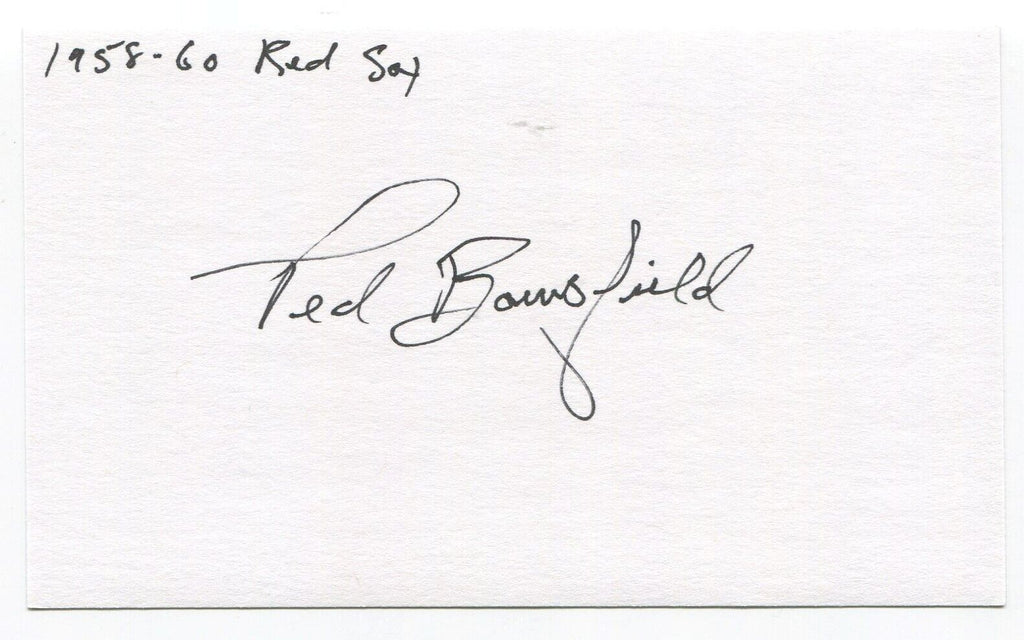 1958-60 Red Sox
Ted Bowsfield